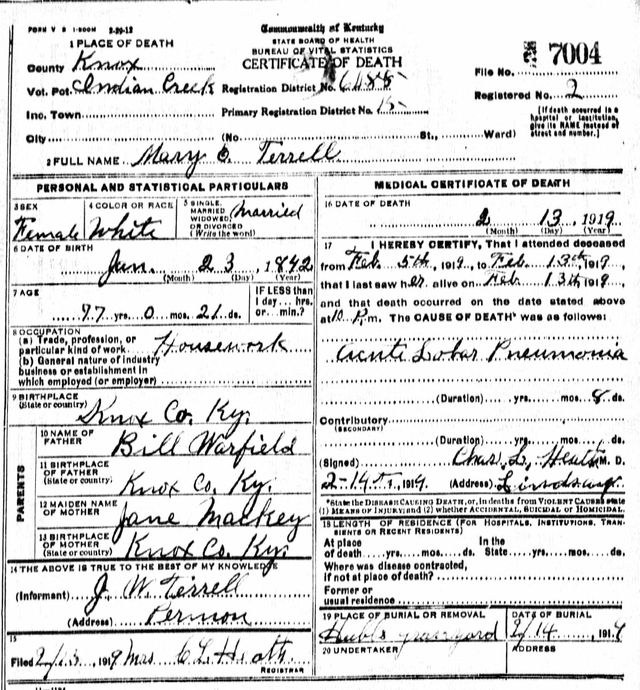 FORM V S 1-500M 2-29-12
Commonwealth of Kentucky
STATE BOARD OF HEALTH
BUREAU OF VITAL STATISTICS
CERTIFICATE OF DEATH
1 PLACE OF DEATH
County Knox
File No. 7004
Vot. Pct. Indian Creek Registration District No. 6085
Registered No. 2
Inc. Town Primary Registration District No. 15
[If death occurred in a hospital or institution, give its NAME instead of street and number.]
City (No. St., Ward)
2 FULL NAME Mary E. Terrell
PERSONAL AND STATISTICAL PARTICULARS
3 SEX
Female
4 COLOR OR RACE
White
5 SINGLE, MARRIED WIDOWED OR DIVORCED (Write the word)
Married
6 DATE OF BIRTH
Jan. 23, 1842
(Month) (Day) (Year)
7 AGE
77 yrs. 0 mos. 21 ds.
IF LESS than 1 day... hrs. or... min.?
8 OCCUPATION
(a) Trade, profession, or particular kind of work Housework
(b) General nature of industry business or establishment in which employed (or employer)
9 BIRTHPLACE
(State or country) Knox Co. Ky.
PARENTS
10 NAME OF FATHER Bill Warfield
11 BIRTHPLACE OF FATHER (State or country) Knox Co. Ky.
12 MAIDEN NAME OF MOTHER Jane Mackey
13 BIRTHPLACE OF MOTHER (State or country) Knox Co. Ky.
14 THE ABOVE IS TRUE TO THE BEST OF MY KNOWLEDGE
(Informant) J. W. Terrell
(Address) Permon
15
Filed 2/15, 1919 Mrs C L Heath
REGISTRAR
MEDICAL CERTIFICATE OF DEATH
16 DATE OF DEATH
2 13 1919
(Month) (Day) (Year)
17 I HEREBY CERTIFY, That I attended deceased
from Feb 5th, 1919, to Feb. 13th, 1919,
that I last saw her alive on Feb. 13th, 1919
and that death occurred on the date stated above
at 10 P.m. The CAUSE OF DEATH* was as follows:
Acute Lobar Pneumonia
(Duration) yrs. mos. 8 ds.
Contributory
(SECONDARY)
(Duration) yrs. mos. ds.
(Signed) Chas. L. Heath M. D.
2-14th, 1919. (Address)
*State the DISEASE CAUSING DEATH, or, in deaths from VIOLENT CAUSES state (1) MEANS OF INJURY; and (2) whether ACCIDENTAL, SUICIDAL or HOMICIDAL.
18 LENGTH OF RESIDENCE (FOR HOSPITALS, INSTITUTIONS, TRANSIENTS OR RECENT RESIDENTS)
At place of death yrs. mos. ds. In the State yrs. mos. ds.
Where was disease contracted, if not at place of death?
Former or usual residence
19 PLACE OF BURIAL OR REMOVAL
graveyard
DATE OF BURIAL
2/14 1919
20 UNDERTAKER
ADDRESS